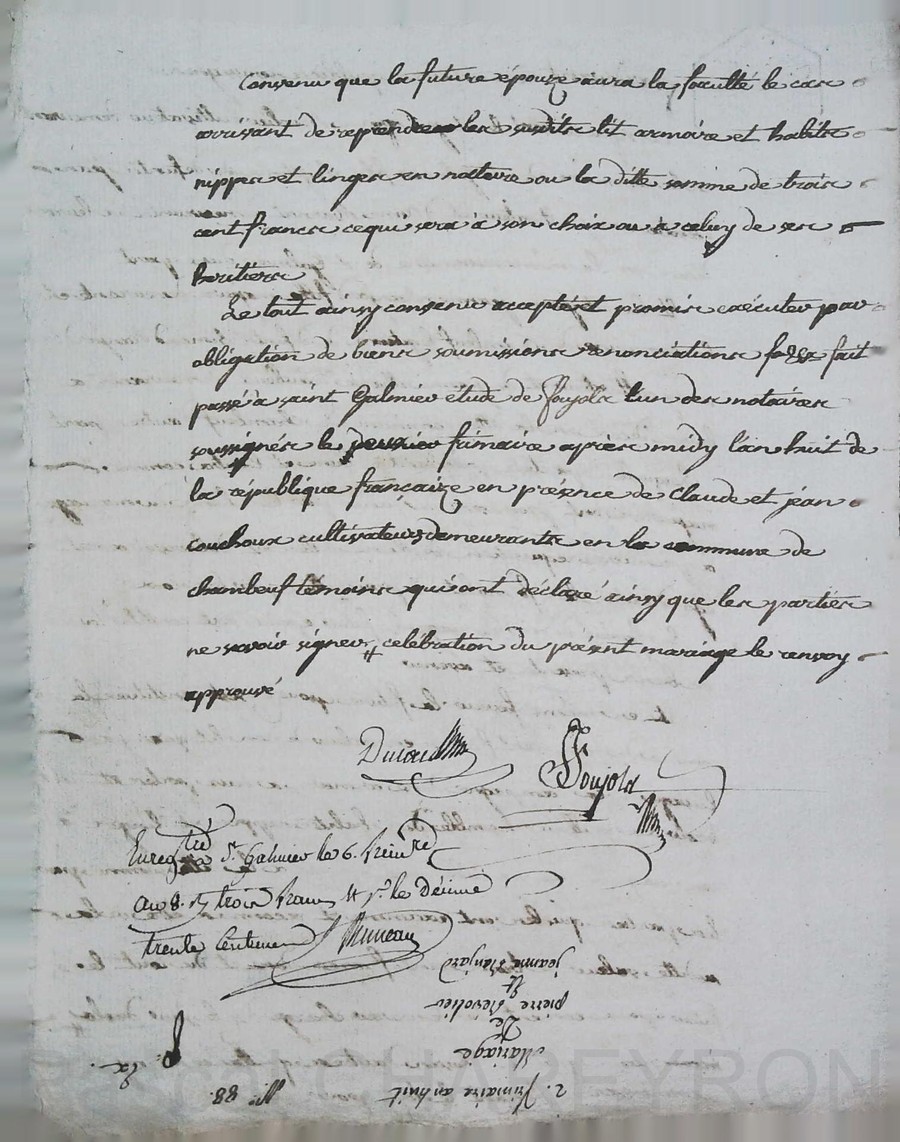 Convenu que la future épouze aura la faculté le cas
arrivant de reprendre les susdits lit armoire et habits
nippes et linges en nature ou la ditte somme de trois
cent francs ce qui sera à son choix ou à celuy de ses
heritiers
Le tout ainsy convenu accepté et promis exécuter par
obligation de biens soumissions renonciations fait
passé a saint Galmier étude de Poujols l'un des notaires
soussignés le frimaire après midy l'an huit de
la république françaize en présence de Claude et jean
couchoux cultivateurs demeurants en la commune de
chambeuf témoins qui ont déclaré ainsy que les parties
ne savoir signer célébration du présent mariage le renvoy
approuvé
Poujols
Enregtré à St. Galmier le 6. frimre
an 8. trois francs le Décime
trente Centimes
2. Frimaire an huit No. 88.
Mariage
De
pierre
Et
jeanne